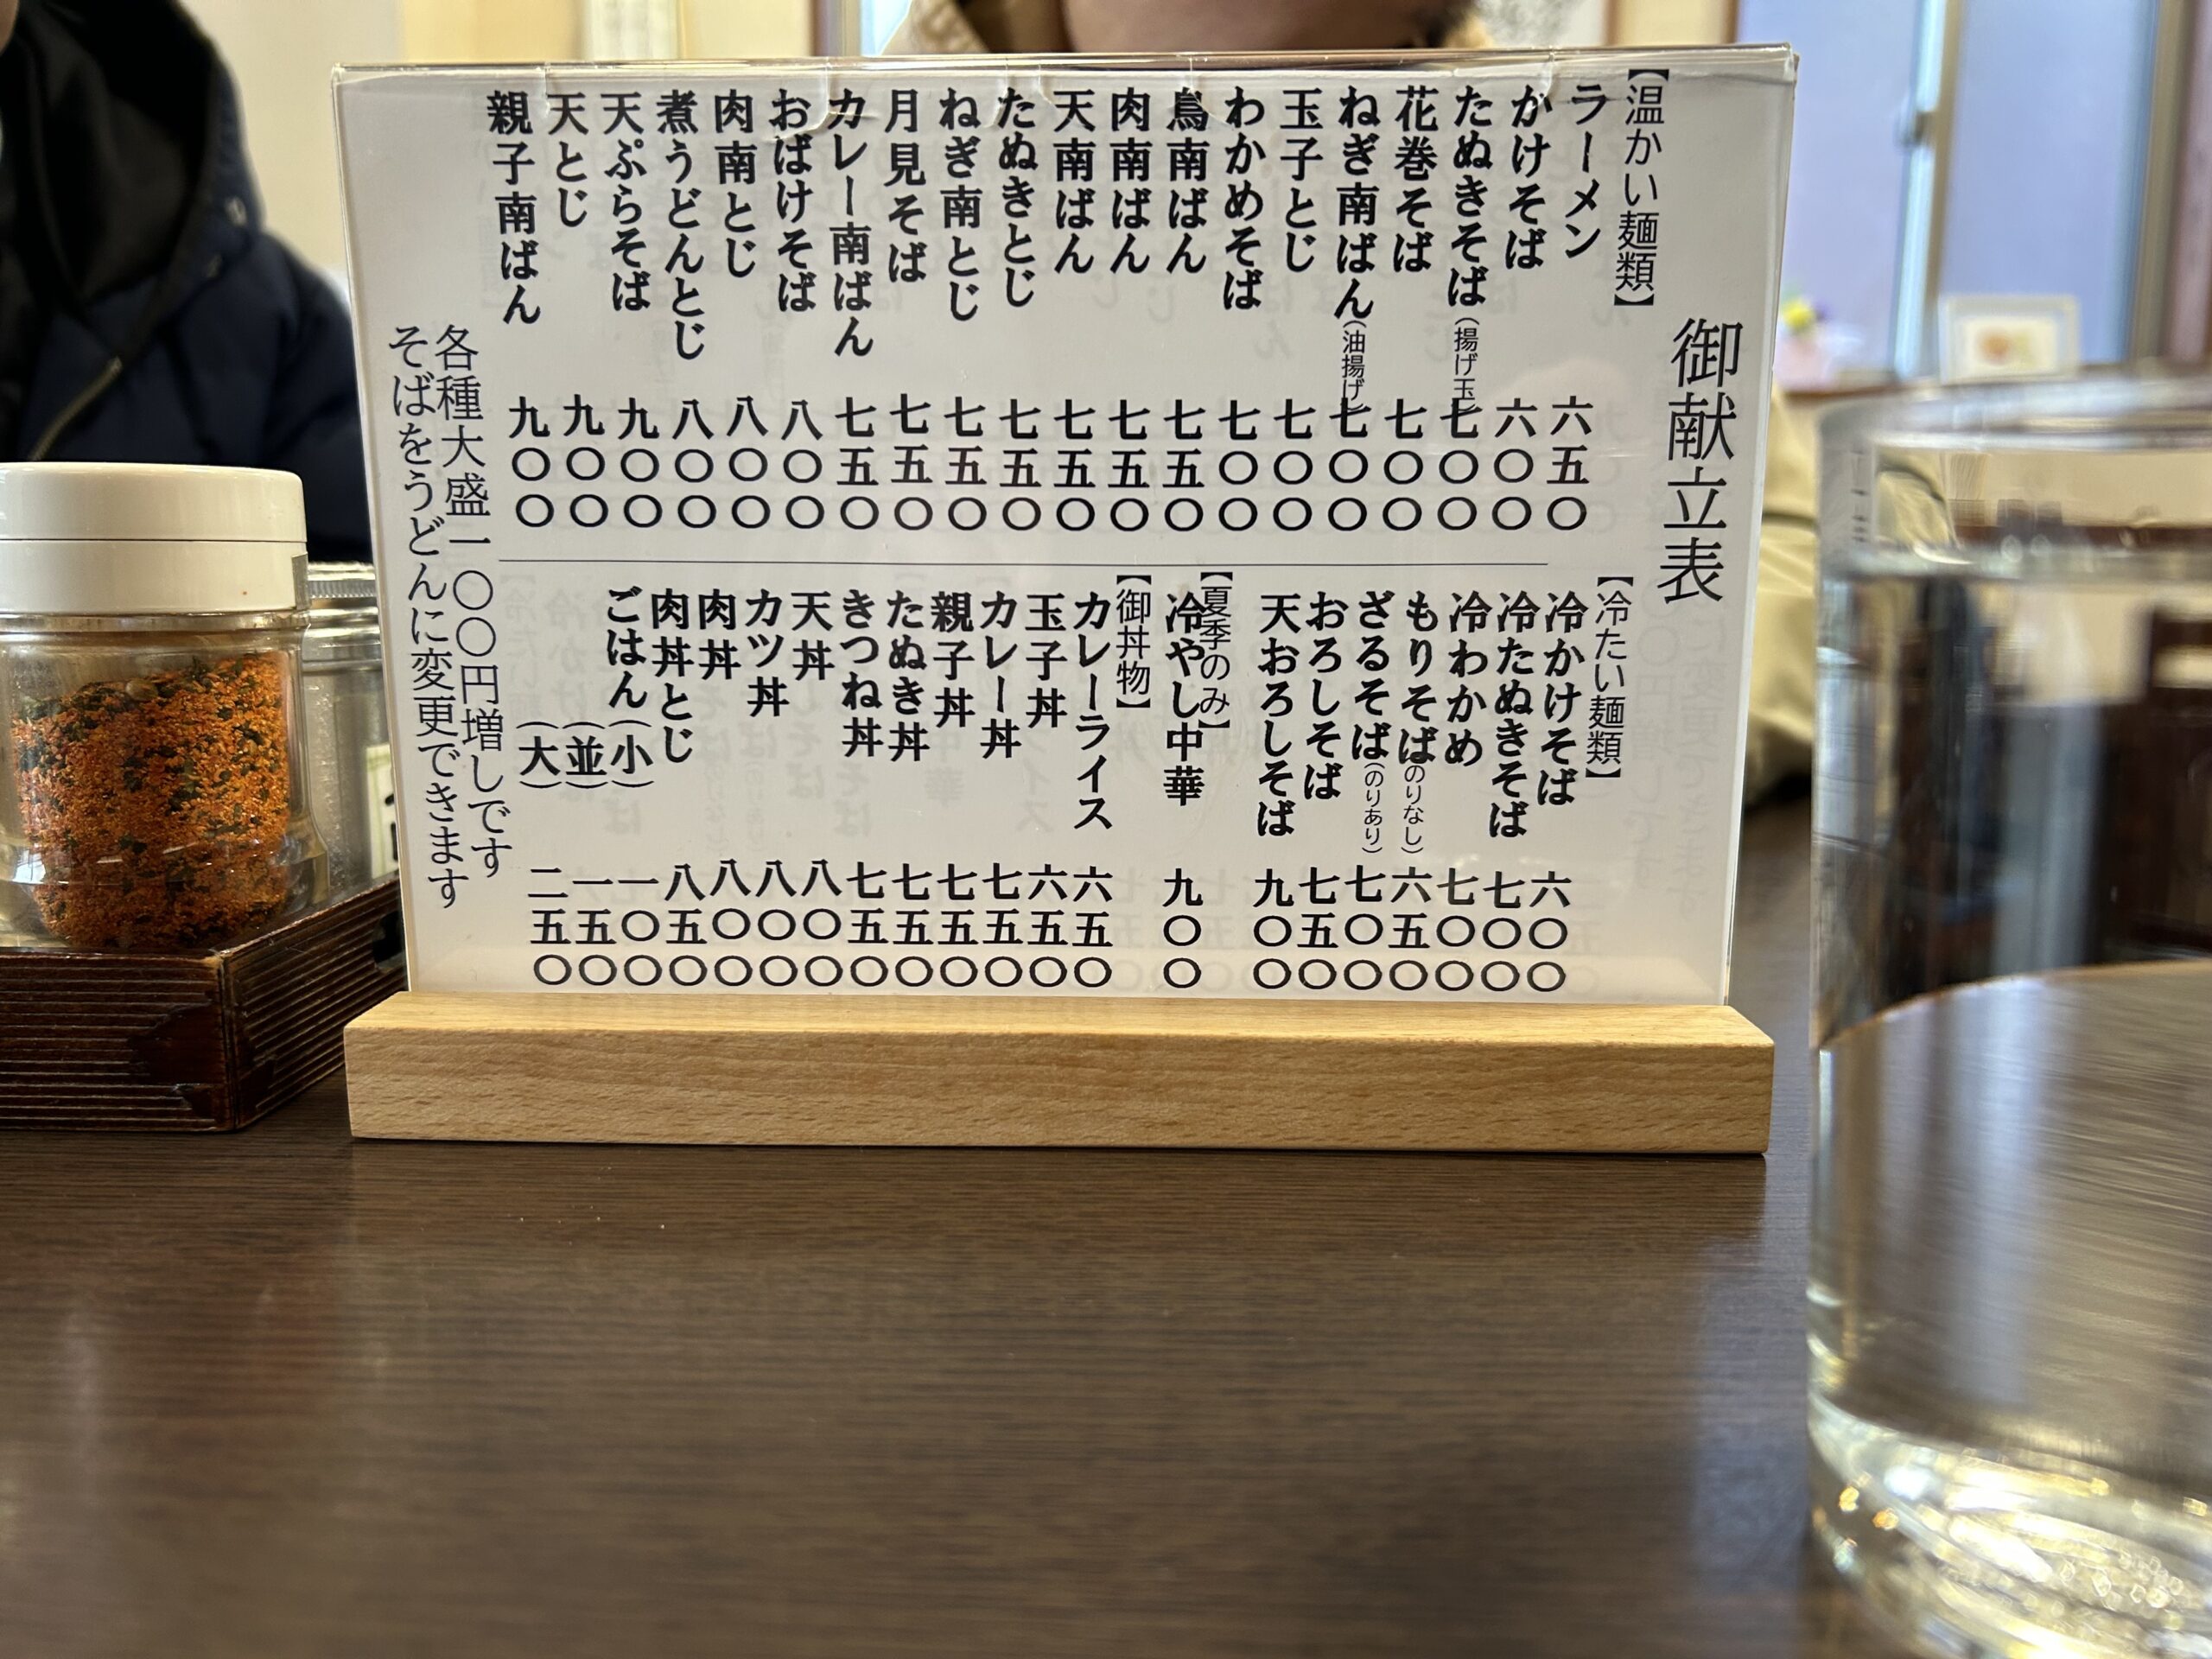 御献立表
【温かい麺類】
ラーメン 六五〇
かけそば 六〇〇
たぬきそば(揚げ玉) 七〇〇
花巻そば 七〇〇
ねぎ南ばん(油揚げ) 七〇〇
玉子とじ 七〇〇
わかめそば 七〇〇
鳥南ばん 七五〇
肉南ばん 七五〇
天南ばん 七五〇
たぬきとじ 七五〇
ねぎ南とじ 七五〇
月見そば 七五〇
カレー南ばん 七五〇
おばけそば 八〇〇
肉南とじ 八〇〇
煮うどんとじ 八〇〇
天ぷらそば 九〇〇
天とじ 九〇〇
親子南ばん 九〇〇
【冷たい麺類】
冷かけそば 六〇〇
冷たぬきそば 七〇〇
冷わかめ 七〇〇
もりそば(のりなし) 六五〇
ざるそば(のりあり) 七〇〇
おろしそば 七五〇
天おろしそば 九〇〇
【夏季のみ】
冷やし中華 九〇〇
【御丼物】
カレーライス 六五〇
玉子丼 六五〇
カレー丼 七五〇
親子丼 七五〇
たぬき丼 七五〇
きつね丼 七五〇
天丼 八〇〇
カツ丼 八〇〇
肉丼 八〇〇
肉丼とじ 八五〇
ごはん(小) 一〇〇
(並) 一五〇
(大) 二五〇
各種大盛一〇〇円増しです
そばをうどんに変更できます